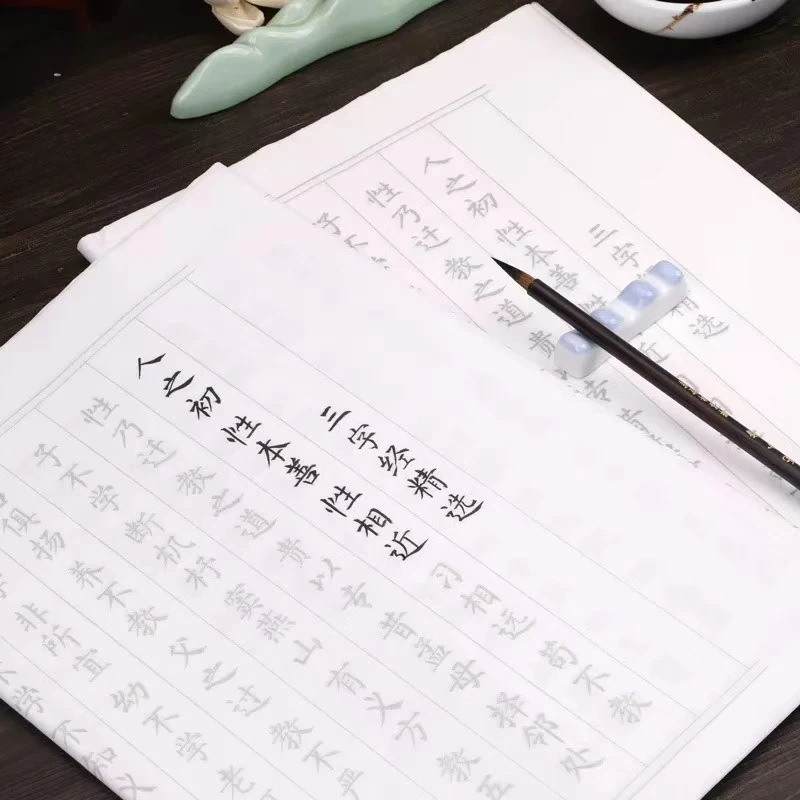 三字经精选
人之初 性本善 性相近 习相远 苟不教
性乃迁 教之道 贵以专 昔孟母 择邻处
子不学 断机杼 窦燕山 有义方 教五
俱扬 养不教 父之过 教不严
非所宜 幼不学 老
学 不知义
三字 精选
人之初 性本善 性相近
性乃迁 教之道 贵
子不